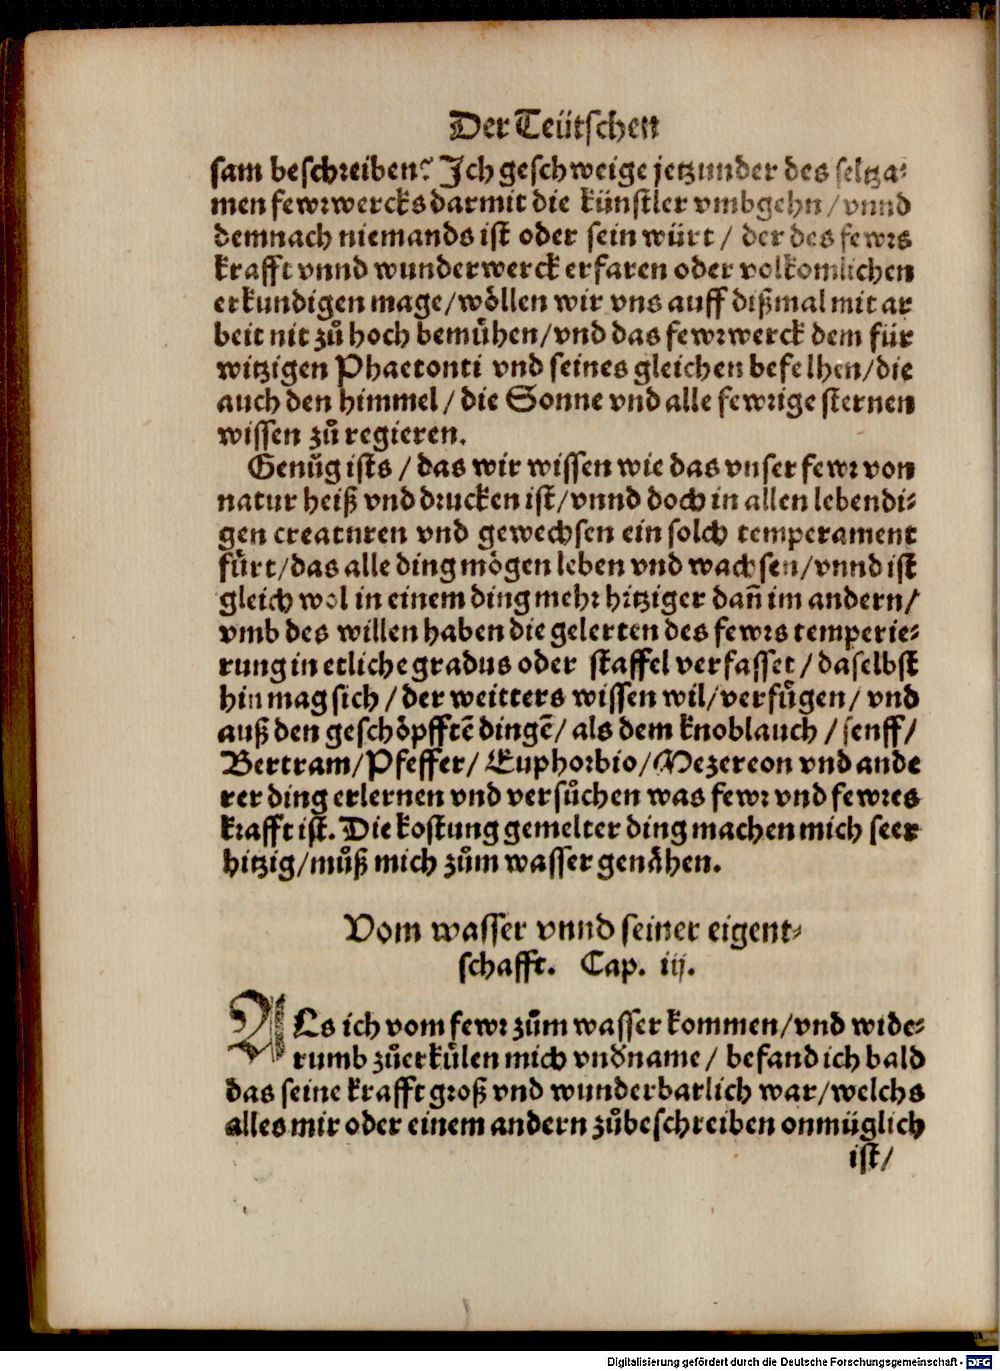 Der Teütschen
sam beschreiben? Ich geschweige jetzunder des seltza⸗
men fewrwercks darmit die künstler vmbgehn / vnnd
demnach niemands ist oder sein würt / der des fewrs
krafft vnnd wunderwerck erfaren oder volkomlichen
erkundigen mage / wöllen wir vns auff dißmal mit ar
beit nit zů hoch bemühen / vnd das fewrwerck dem für
witzigen Phaetonti vnd seines gleichen befelhen / die
auch den himmel / die Sonne vnd alle fewrige sternen
wissen zů regieren.
Genůg ists / das wir wissen wie das vnser fewr von
natur heiß vnd drucken ist / vnnd doch in allen lebendi⸗
gen creaturen vnd gewechsen ein solch temperament
fürt / das alle ding mögen leben vnd wachsen / vnnd ist
gleich wol in einem ding mehr hitziger dañ im andern /
vmb des willen haben die gelerten des fewrs temperie⸗
rung in etliche gradus oder staffel verfasset / daselbst
hin mag sich / der weitters wissen wil / verfügen / vnd
auß den geschöpfftē dingē / als dem knoblauch / senff /
Bertram / Pfeffer / Euphorbio / Mezereon vnd ande
rer ding erlernen vnd versůchen was fewr vnd fewres
krafft ist. Die kostung gemelter ding machen mich seer
hitzig / můß mich zům wasser genähen.
Vom wasser vnnd seiner eigent⸗
schafft. Cap. iij.
ALs ich vom fewr zům wasser kommen / vnd wide⸗
rumb zůerkülen mich vndname / befand ich bald
das seine krafft groß vnd wunderbarlich war / welchs
alles mir oder einem andern zůbeschreiben onmüglich
ist /
Digitalisierung gefördert durch die Deutsche Forschungsgemeinschaft - DFG